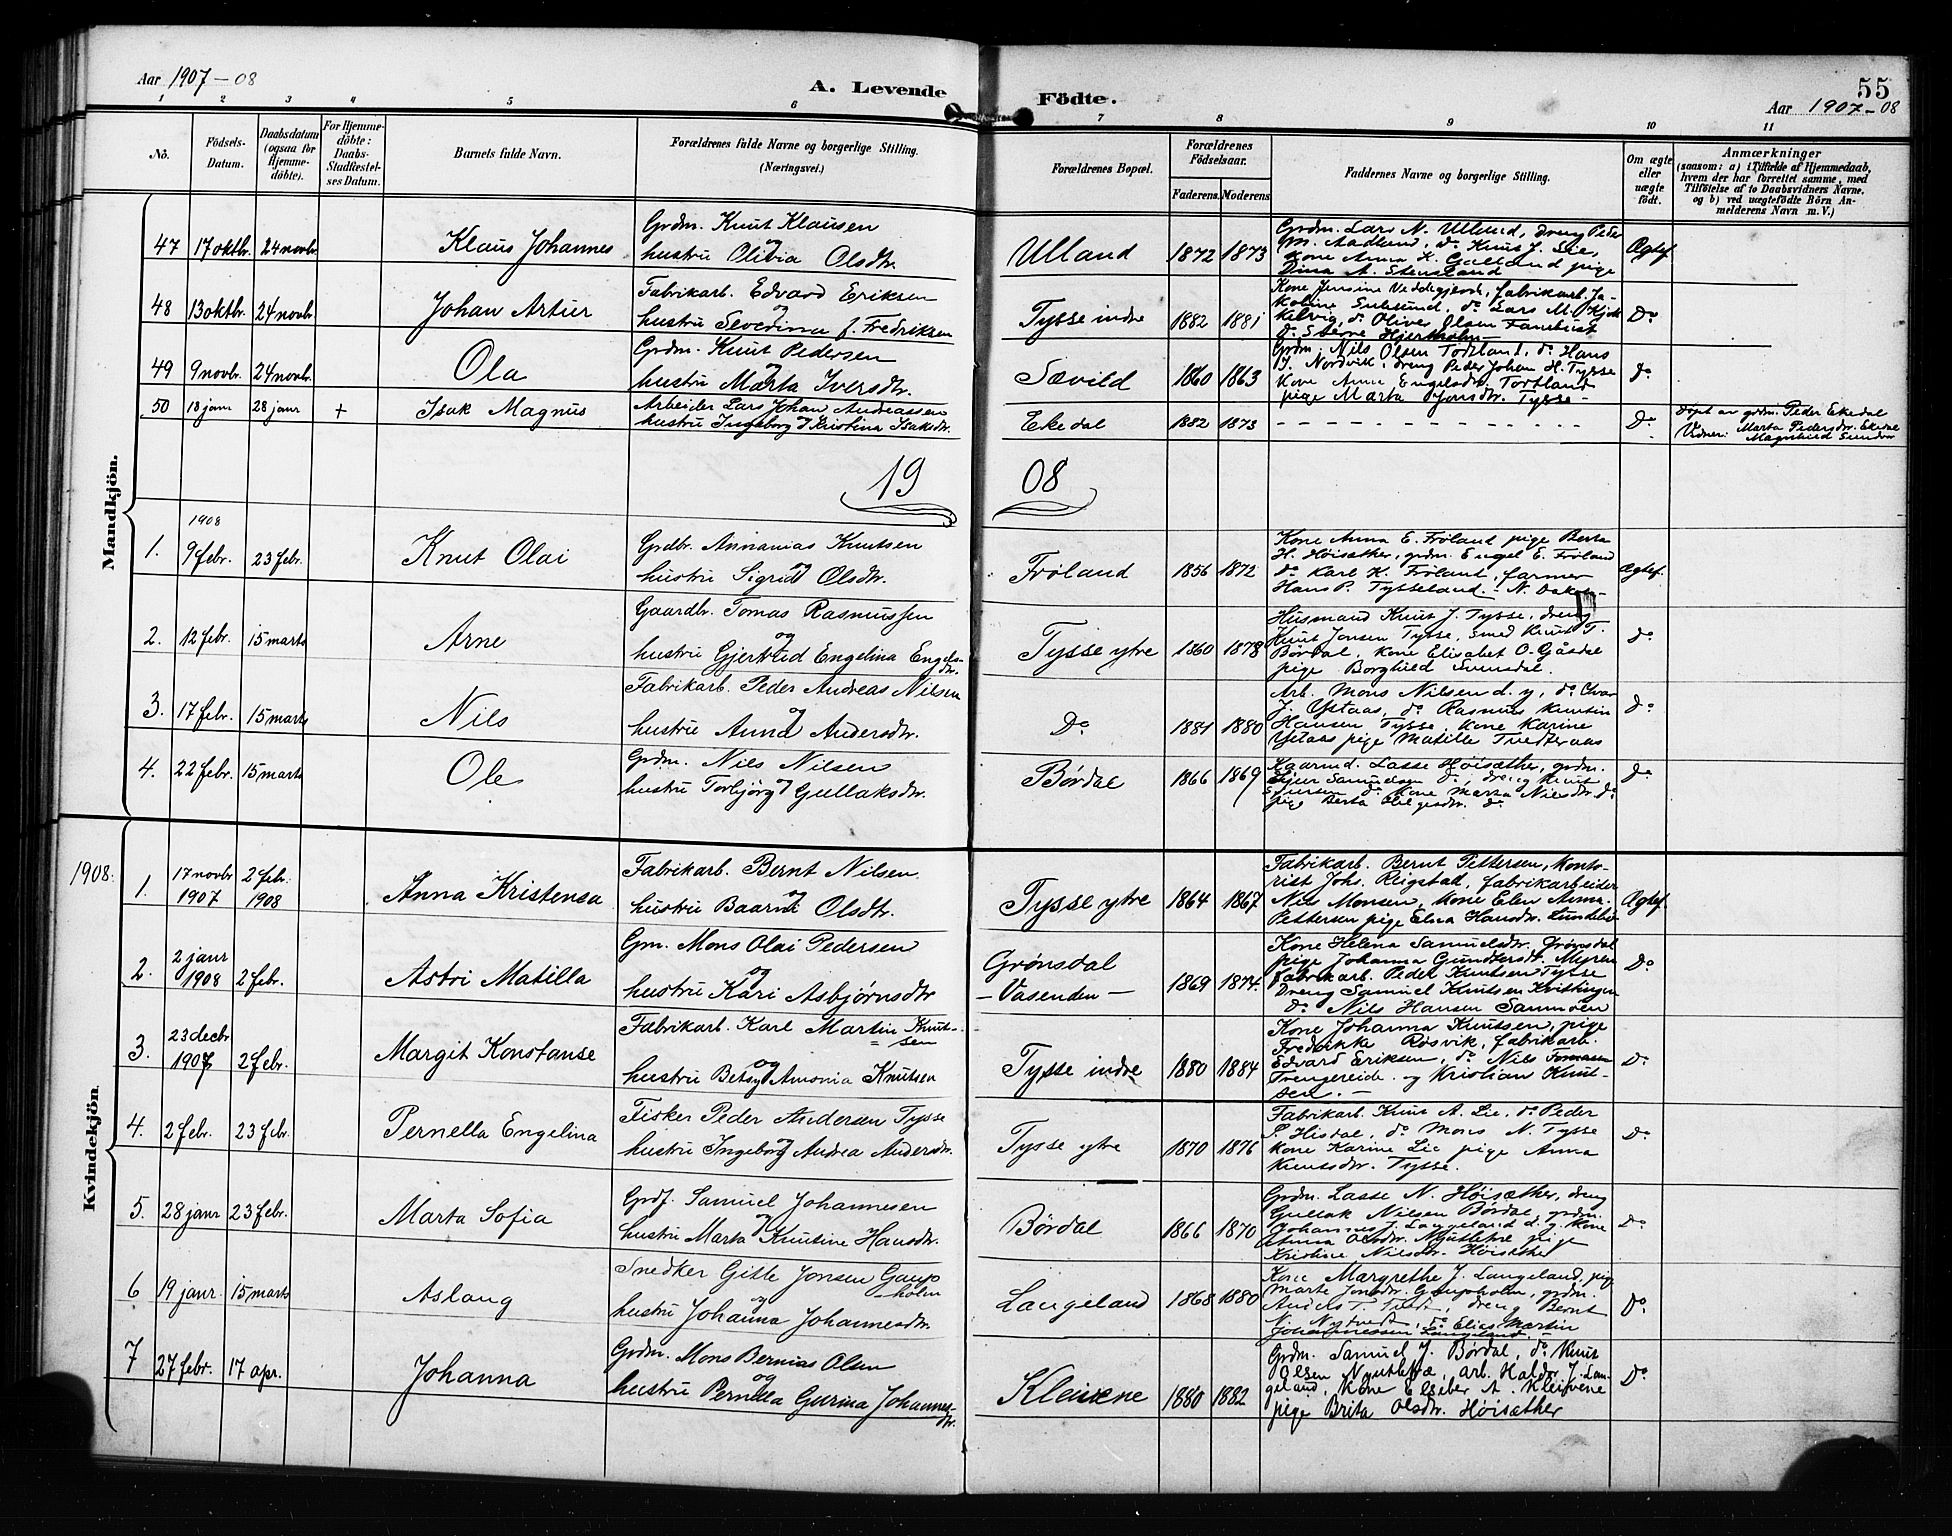 Aar 1907-08
A. Levende Födte.
55
Aar 1907-08
1 2 3 4 5 6 7 8 9 10 11
No.
Födsels-Datum.
Daabsdatum (ogsaa for Hjemmedöbte).
For Hjemmedöbte: Daabs-Stadfæstelses Datum.
Barnets fulde Navn.
Forældrenes fulde Navne og borgerlige Stilling. (Næringsvei.)
Forældrenes Bopæl.
Forældrenes Födselsaar.
Faderens. Moderens.
Faddernes Navne og borgerlige Stilling.
Om ægte eller uægte födt.
Anmærkninger
(saasom: a) i Tilfælde af Hjemmedaab, hvem der har forrettet samme, med Tilföielse af to Daabsvidners Navne, og b) ved uægtefödte Börn Anmelderens Navn m. V.)
Mandkjön.
47 17 oktbr. 24 novbr. Klaus Johannes
Grdm. Knut Klausen
og
hustru Olivia Olsdtr.
Ulland 1872 1873
Grdm. Lars N. Ulland, dreng Peder
M. Aadland, do Knut J. Lie,
Kone Anna K. Gulland pige
Dina A. Stensland
Ægtef.
48 13 oktbr. 24 novbr. Johan Artur
Fabrikarb. Edvard Eriksen
og
hustru Severdina f. Fredriksen
Tysse indre 1882 1881
Kone Jensine Veddegjerd, fabrikarb. Ja-
do Oliver Olsen
Do
49 9 novbr. 24 novbr. Ola
Grdm. Knut Pedersen
og
hustru Marta Iversdtr.
Sævild 1860 1863
Grdm. Nils Olsen Todtland, do Hans
J. Nordvik, dreng Peder Johan H. Tysse
Kone Anna Engelsdtr. Todtland
pige Marta Jonsdtr. Tysse
Do
50 18 janr 28 janr + Isak Magnus
Arbeider Lars Johan Andreassen
og
hustru Ingeborg Kristina Isaksdtr.
Ekedal 1882 1873 Do
Døpt av grdm. Peder Ekedal
Vidner: Marta Pedersdtr. Ekedal
Magnhild
1908
1908
1. 9 febr. 23 febr. Knut Olai
Grdbr. Annanias Knutsen
og
hustru Sigrid Olsdtr.
Frøland 1856 1872
Kone Anna E. Frøland pige Berta
H. Høisæther, grdm. Engel E. Frøland
do Karl K. Frøland, farmer
Hans P. Tysseland - N. Dakota
Ægtef.
2. 12 febr. 15 marts Arne
Gaardbr. Tomas Rasmussen
og
hustru Gjertrud Engelina Engels-
dtr.
Tysse ytre 1860 1878
Husmand Knut J. Tysse, dreng
Knut Jonsen Tysse, Smed Knut T.
Børdal, Kone Elisabet O. Gåsdal
pige Borghild
Do
3. 17 febr. 15 marts Nils
Fabrikarb. Peder Andreas Nilsen
og
hustru Anna Andersdtr.
Do 1881 1880
Arb. Mons Nilsen d. y., do Ivar
J. Ystaas, do Rasmus Knutsen
Hansen Tysse, Kone Karine
Ystaas pige Matille
Do
4. 22 febr. 15 marts Ole
Grdm. Nils Nilsen
og
hustru Torbjørg Gullaksdtr.
Børdal 1866 1869
Lasse Høisæther, grdm.
Samuelsen do, dreng Knut
do Kone Marta Nilsdtr. do
pige Berta
Do
Kvindekjön
1908.
1. 17 novbr 1907 2 febr. 1908 Anna Kristensa
Fabrikarb. Bernt Nilsen
og
hustru Baarni Olsdtr.
Tysse ytre 1864 1867
Fabrikarb. Bernt Pettersen, Konto-
rist Johs. Reigstad, fabrikarbeider
Nils Monsen, Kone Elen Anna
Pettersen pige Elna Hansdtr.
Ægtef.
2. 2 janr 1908 2 febr. Astri Matilla
Gm. Mons Olai Pedersen
og
hustru Kari Asbjørnsdtr
Grønsdal
- Vasenden - 1869 1874.
Kone Helena Samuelsdtr. Grønsdal
pige Johanna Gundersdt. Myren
fabrikarb. Peder Knutsen Tysse
Dreng Samuel Knutsen Kvittingen
do Nils Hansen Samnøen
Do
3. 23 decbr 1907 2 febr. Margit Konstanse
Fabrikarb. Karl Martin Knut-
sen
og
hustru Betsy Amonia Knutsen
Tysse indre 1880 1884
Kone Johanna Knutsen, pige
Fredrikke Røsvik, fabrikarb.
Edvard Eriksen, do Nils Tomasen
Trengereide og Kristian Knut-
sen. -
Do
4. 2 febr. 23 febr. Pernella Engelina
Fisker Peder Andersen Tysse
og
hustru Ingeborg Andrea Andersdtr.
Tysse ytre 1870 1876
Fabrikarb. Knut A. Lie, do Peder
P. Hisdal, do Mons N. Tysse
Kone Karine Lie pige Anna
Knutsdtr. Tysse.
Do
5. 28 janr 23 febr. Marta Sofia
Grdf. Samuel Johannesen
og
hustru Marta Knutine Hansdtr.
Børdal 1866 1870
Grdm. Lasse N. Høisæther, dreng
Gullak Nilsen Børdal, grdm.
Johannes J. Langeland d. y. Kone
Anna Olsdtr. pige
Kristine Nilsdtr. Høisæther
Do
6 19 janr 15 marts Aslaug
Snedker Gitle Jonsen Gaup-
holm
og
hustru Johanna Johannesdtr.
Langeland 1868 1880
Kone Margrethe J. Langeland, pig
Marte Jonsdtr. Gaupholm, grdm.
Anders T. dreng Bernt
N. do Elias Martin
Johannessen Langeland. -
Do
7 27 febr. 17 apr. Johanna
Grdm. Mons Bernias Olsen
og
hustru Pernella Gurina Johannes-
dtr.
Kleivene 1880 1882
Grdm. Samuel J. Børdal, do Knut
Olsen arb. Haldor J. Lan-
geland, Kone Elseber A. Kleivene
pige Brita Olsdtr. Høisæther
Do